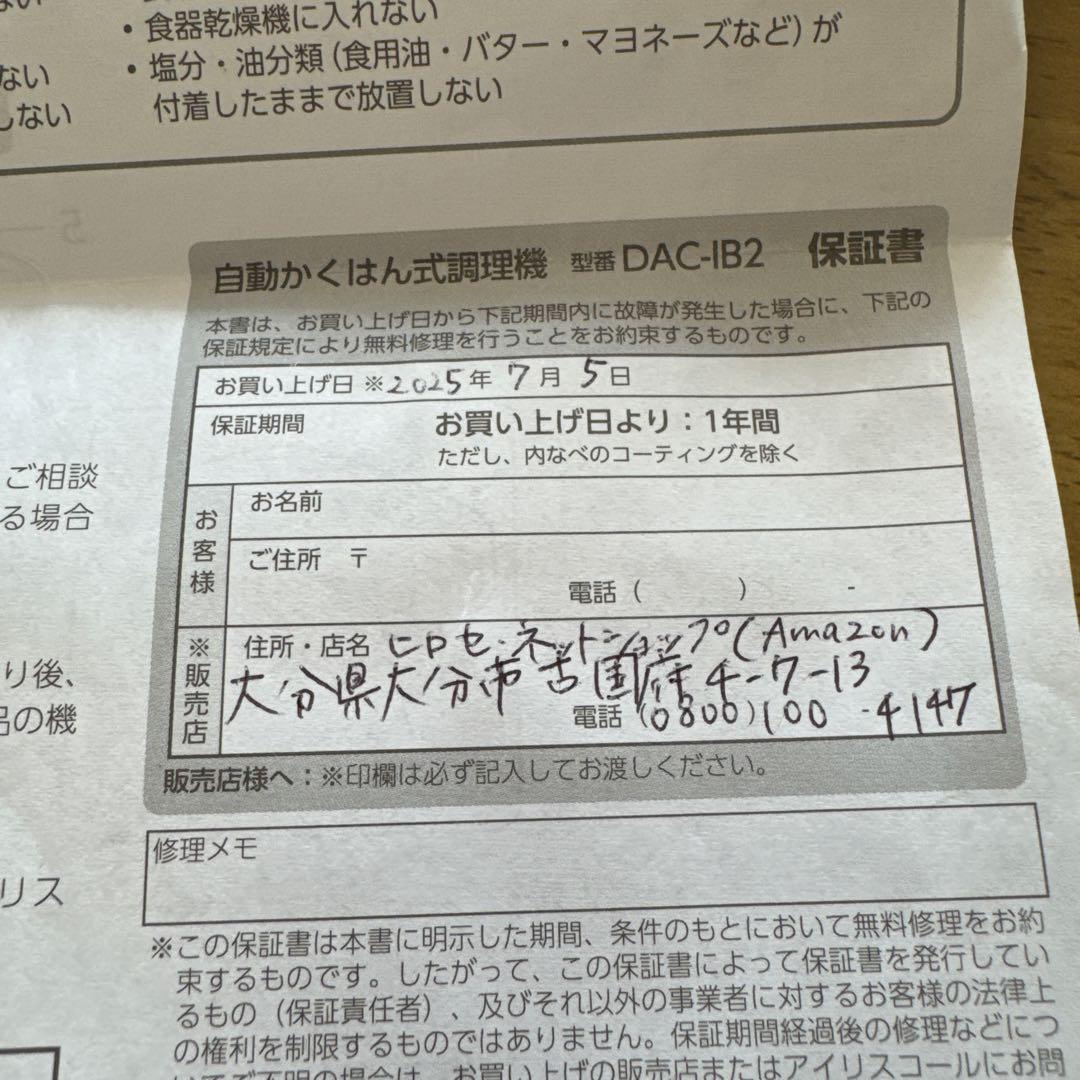 ない
・食器乾燥機に入れない
ない
・塩分・油分類(食用油・バター・マヨネーズなど)が
しない
付着したままで放置しない
自動かくはん式調理機 型番 DAC-IB2 保証書
本書は、お買い上げ日から下記期間内に故障が発生した場合に、下記の
保証規定により無料修理を行うことをお約束するものです。
お買い上げ日 ※2025年 7月 5日
保証期間 お買い上げ日より:1年間
ただし、内なべのコーティングを除く
ご相談
る場合
お客様
お名前
ご住所 〒
電話( ) -
※販売店
住所・店名 ヒロセ・ネットショップ(Amazon)
大分県大分市古国府4-7-13
電話(0800)100-4147
り後、
品の機
販売店様へ:※印欄は必ず記入してお渡しください。
修理メモ
リス
※この保証書は本書に明示した期間、条件のもとにおいて無料修理をお約
束するものです。したがって、この保証書によって保証書を発行してい
るもの(保証責任者)、及びそれ以外の事業者に対するお客様の法律上
の権利を制限するものではありません。保証期間経過後の修理などにつ
いてご不明の場合は、お買い上げの販売店またはアイリスコールにお問